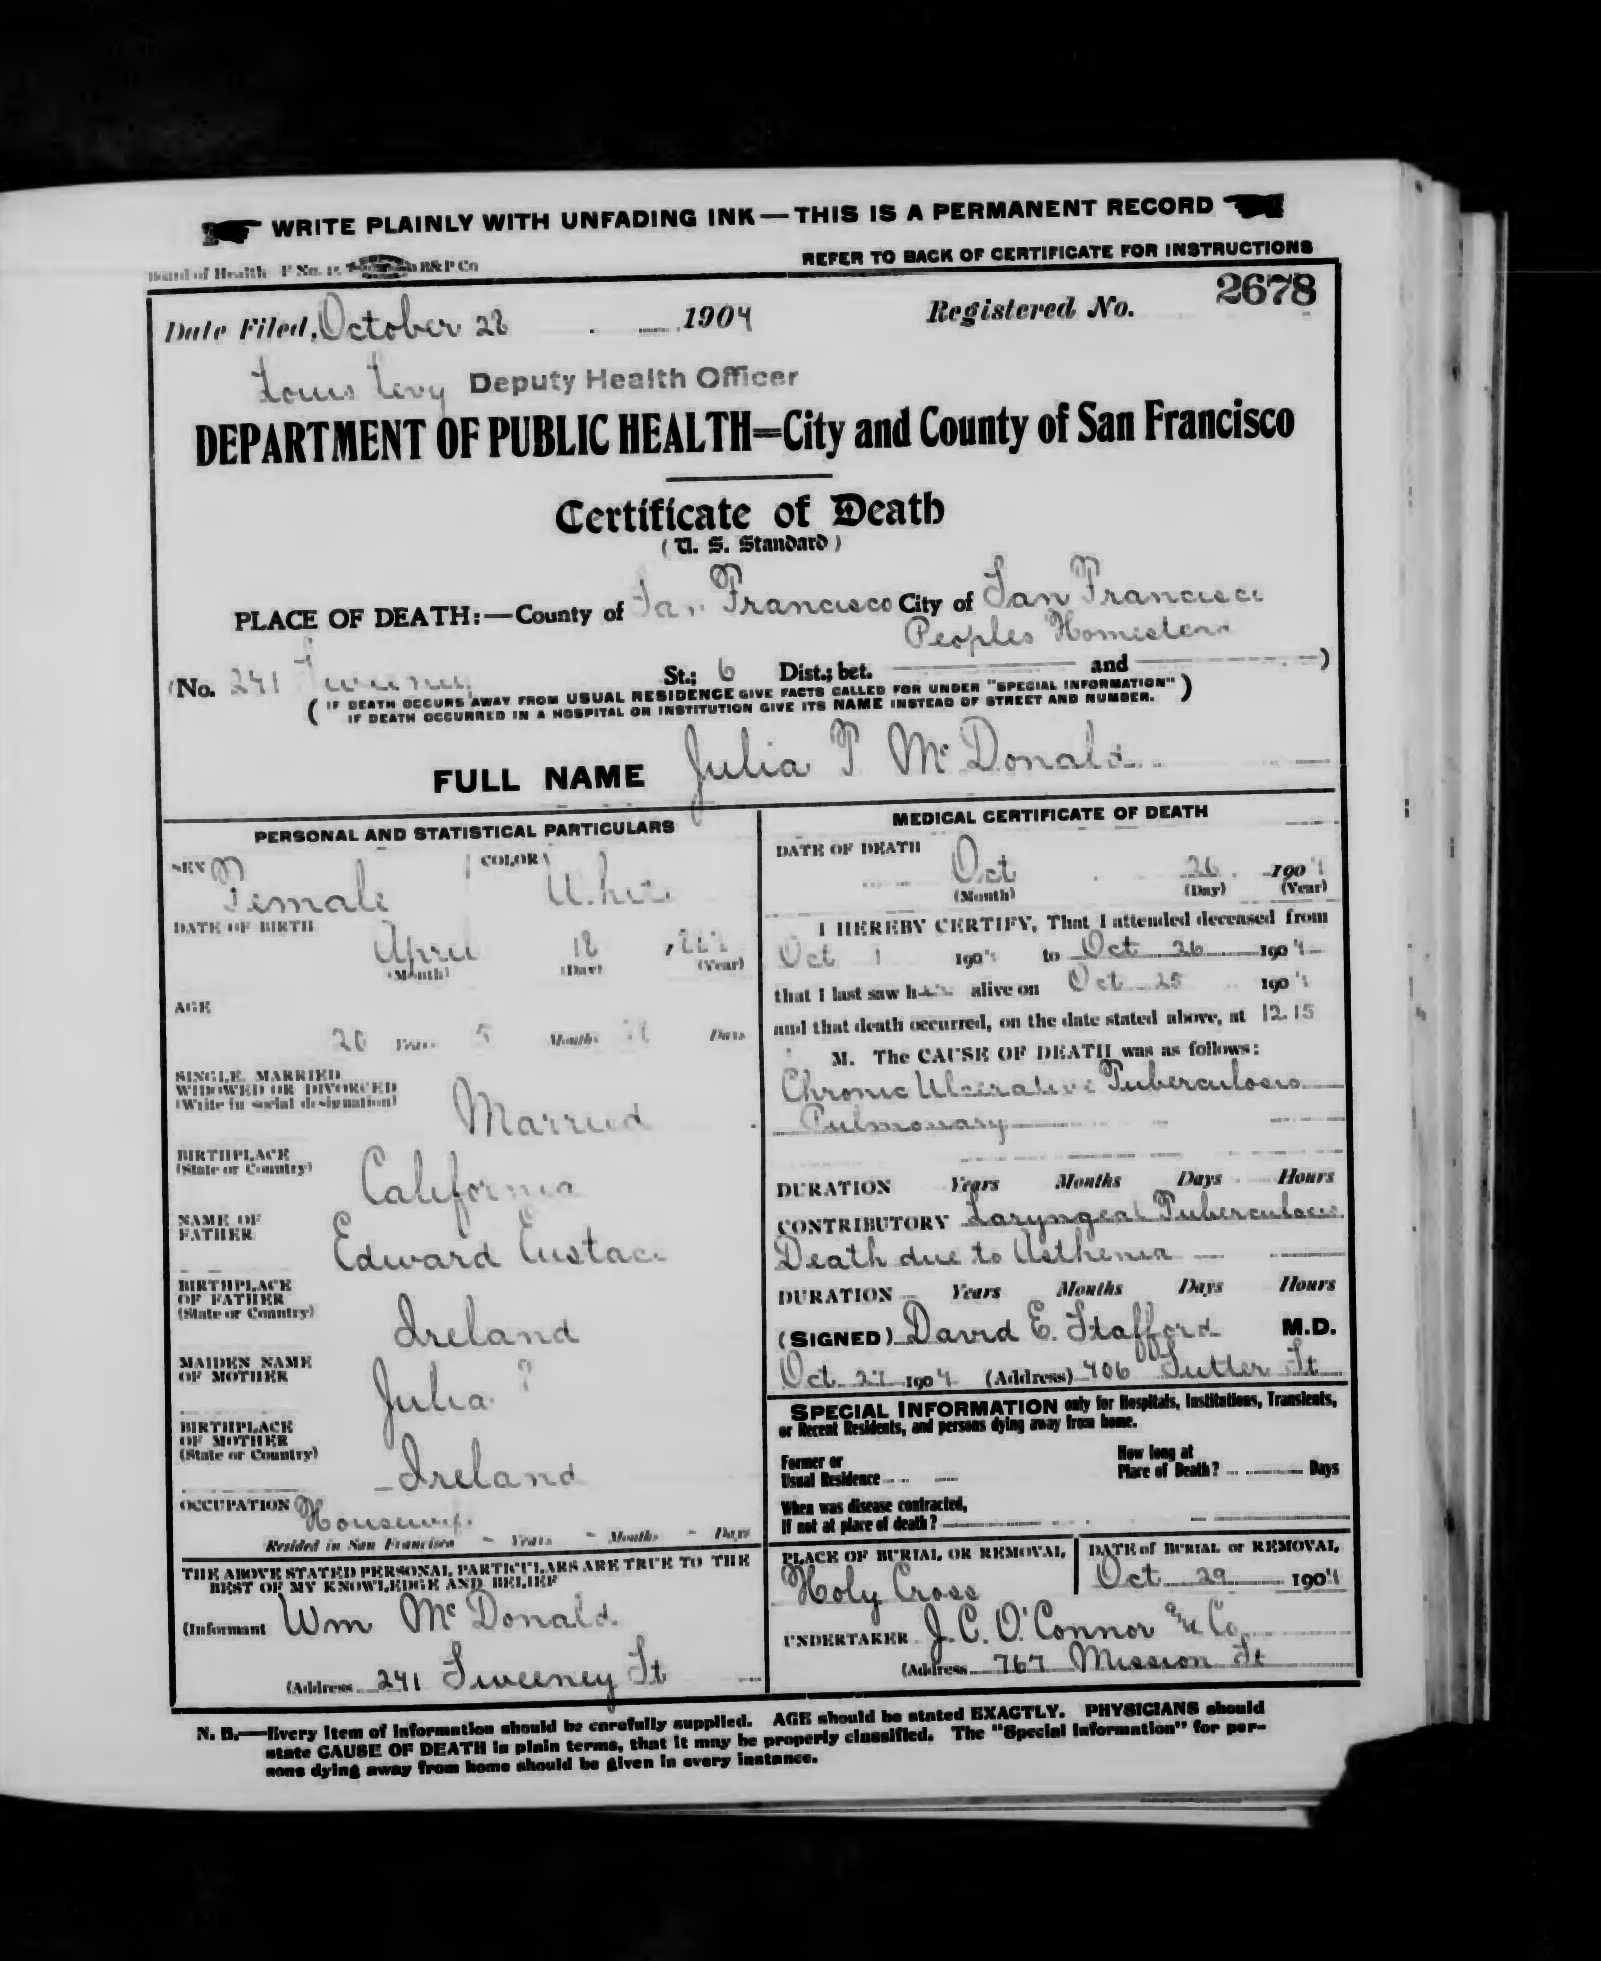 WRITE PLAINLY WITH UNFADING INK — THIS IS A PERMANENT RECORD
Board of Health F No. B&P Co
REFER TO BACK OF CERTIFICATE FOR INSTRUCTIONS
Date Filed, October 28 1904 Registered No. 2678
Louis Levy Deputy Health Officer
DEPARTMENT OF PUBLIC HEALTH=City and County of San Francisco
Certificate of Death
(U. S. Standard)
PLACE OF DEATH:—County of San Francisco City of San Francisco
Peoples
(No. 241 Sweeney St.; 6 Dist.; bet. and )
( IF DEATH OCCURS AWAY FROM USUAL RESIDENCE GIVE FACTS CALLED FOR UNDER "SPECIAL INFORMATION" )
( IF DEATH OCCURRED IN A HOSPITAL OR INSTITUTION GIVE ITS NAME INSTEAD OF STREET AND NUMBER.
FULL NAME Julia F McDonald
PERSONAL AND STATISTICAL PARTICULARS
SEX Female COLOR White
DATE OF BIRTH
April 18
(Month) (Day) (Year)
AGE
Years 5 Months Days
SINGLE, MARRIED,
WIDOWED OR DIVORCED
(Write in social designation) Married
BIRTHPLACE
(State or Country) California
NAME OF
FATHER Edward Eustace
BIRTHPLACE
OF FATHER
(State or Country) Ireland
MAIDEN NAME
OF MOTHER Julia ?
BIRTHPLACE
OF MOTHER
(State or Country) Ireland
OCCUPATION Housewife
Resided in San Francisco - Years - Months - Days
THE ABOVE STATED PERSONAL PARTICULARS ARE TRUE TO THE
BEST OF MY KNOWLEDGE AND BELIEF
(Informant Wm McDonald
(Address 241 Sweeney St
MEDICAL CERTIFICATE OF DEATH
DATE OF DEATH
Oct 26 1904
(Month) (Day) (Year)
I HEREBY CERTIFY, That I attended deceased from
Oct 1 1904 to Oct 26 1904
that I last saw her alive on Oct 25 1904
and that death occurred, on the date stated above, at 12.15
M. The CAUSE OF DEATH was as follows:
Chronic Ulcerative Tuberculosis
Pulmonary
DURATION Years Months Days Hours
CONTRIBUTORY Laryngeal Tuberculosis
Death due to Asthenia
DURATION Years Months Days Hours
(SIGNED) David E. Stafford M.D.
Oct 27 1904 (Address) 406 Sutter St
SPECIAL INFORMATION only for Hospitals, Institutions, Transients,
or Recent Residents, and persons dying away from home.
Former or
Usual Residence
How long at
Place of Death? Days
When was disease contracted,
If not at place of death?
PLACE OF BURIAL OR REMOVAL
Holy Cross
DATE of BURIAL or REMOVAL
Oct 29 1904
UNDERTAKER J. C. O'Connor & Co.
(Address 767 Mission St
N. B.—Every item of information should be carefully supplied. AGE should be stated EXACTLY. PHYSICIANS should
state CAUSE OF DEATH in plain terms, that it may be properly classified. The "Special Information" for per-
sons dying away from home should be given in every instance.